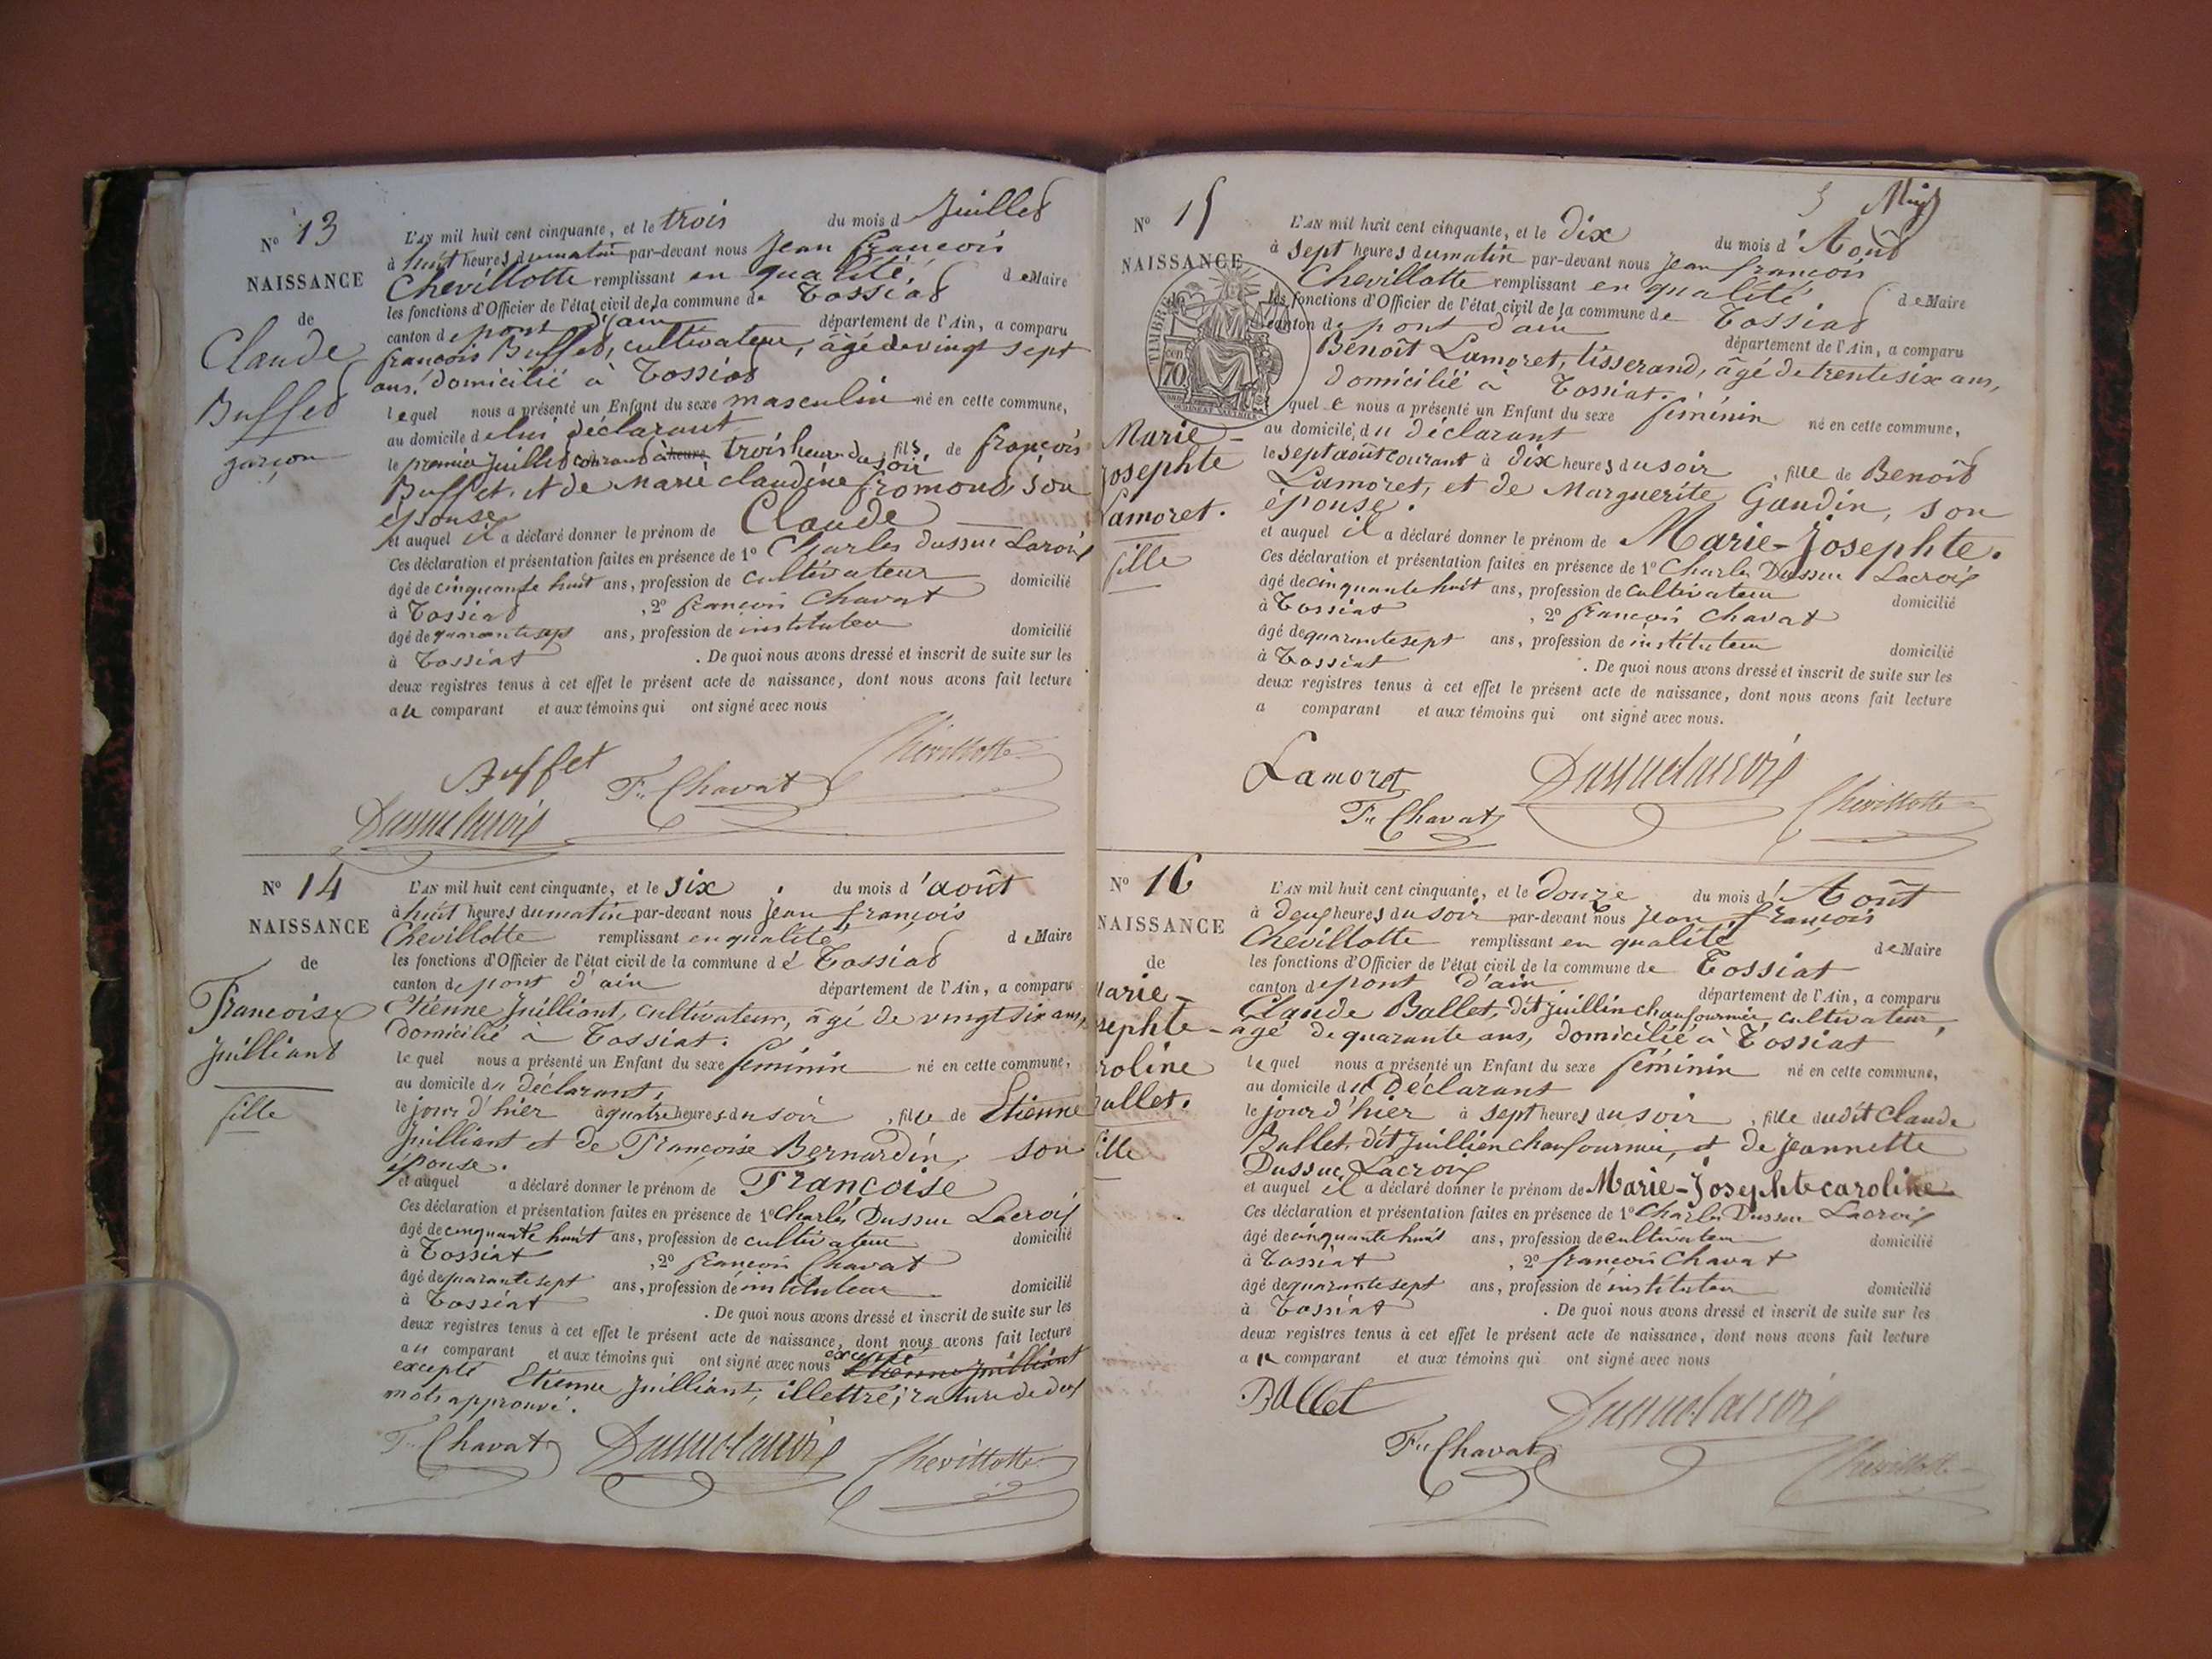 N° 13
NAISSANCE
de
Claude
Buffet
garçon
L'AN mil huit cent cinquante, et le trois du mois d Juillet
à huit heures du matin par-devant nous Jean françois
Chevillotte remplissant en qualité d e Maire
les fonctions d'Officier de l'état civil de la commune de Tossiat
canton de pont d'ain département de l'Ain, a comparu
françois Buffet, cultivateur, âgé de vingt sept
ans, domicilié à Tossiat
lequel nous a présenté un Enfant du sexe masculin né en cette commune,
au domicile de lui déclarant
le premier juillet courant à heure trois heures du soir, fils de françois
Buffet, et de Marie claudine fromont, son
épouse
et auquel il a déclaré donner le prénom de Claude
Ces déclaration et présentation faites en présence de 1° Charles Dussuc Lacroix
âgé de cinquante huit ans, profession de cultivateur domicilié
à Tossiat, 2° françois Chavat
âgé de quarante sept ans, profession de instituteur domicilié
à Tossiat. De quoi nous avons dressé et inscrit de suite sur les
deux registres tenus à cet effet le présent acte de naissance, dont nous avons fait lecture
au comparant et aux témoins qui ont signé avec nous
Buffet F. Chavat Chevillotte
Dussuc Lacroix
N° 14
NAISSANCE
de
Francoise
Juilliant
fille
L'AN mil huit cent cinquante, et le six du mois d'août
à huit heures du matin par-devant nous Jean françois
Chevillotte remplissant en qualité d e Maire
les fonctions d'Officier de l'état civil de la commune de Tossiat
canton de pont d'ain département de l'Ain, a comparu
Etienne Juilliant, cultivateur, âgé de vingt six ans,
domicilié à Tossiat.
lequel nous a présenté un Enfant du sexe féminin né en cette commune,
au domicile du déclarant,
le jour d'hier à quatre heures du soir, fille de Etienne
Juilliant et de Françoise Bernardin, son
épouse.
et auquel a déclaré donner le prénom de Françoise
Ces déclaration et présentation faites en présence de 1° Charles Dussuc Lacroix
âgé de cinquante huit ans, profession de cultivateur domicilié
à Tossiat, 2° françois Chavat
âgé de quarante sept ans, profession de instituteur domicilié
à Tossiat. De quoi nous avons dressé et inscrit de suite sur les
deux registres tenus à cet effet le présent acte de naissance, dont nous avons fait lecture
au comparant et aux témoins qui ont signé avec nous excepté Etienne Juilliant
excepté Etienne Juilliant, illettré; rature de deux
mots approuvé.
F. Chavat Dussuc Lacroix Chevillotte
5
N° 15
NAISSANCE
TIMBRE
cen 70
Marie-
Josephte
Lamoret.
fille
L'AN mil huit cent cinquante, et le Dix du mois d'Août
à sept heures du matin par-devant nous Jean françois
Chevillotte remplissant en qualité d e Maire
les fonctions d'Officier de l'état civil de la commune de Tossiat
canton de pont d'ain département de l'Ain, a comparu
Benoît Lamoret, tisserand, âgé de trente six ans,
domicilié à Tossiat.
quel e nous a présenté un Enfant du sexe féminin né en cette commune,
au domicile du déclarant
le sept août courant à dix heures du soir, fille de Benoît
Lamoret, et de Marguerite Gaudin, son
épouse.
et auquel il a déclaré donner le prénom de Marie-Josephte.
Ces déclaration et présentation faites en présence de 1° Charles Dussuc Lacroix
âgé de cinquante huit ans, profession de cultivateur domicilié
à Tossiat, 2° françois Chavat
âgé de quarante sept ans, profession de instituteur domicilié
à Tossiat. De quoi nous avons dressé et inscrit de suite sur les
deux registres tenus à cet effet le présent acte de naissance, dont nous avons fait lecture
a comparant et aux témoins qui ont signé avec nous.
Lamoret Dussuc Lacroix
F. Chavat Chevillotte
N° 16
NAISSANCE
de
arie-
sephte-
roline
allet.
ille
L'AN mil huit cent cinquante, et le Douze du mois d'Août
à deux heures du soir par-devant nous Jean françois
Chevillotte remplissant en qualité d e Maire
les fonctions d'Officier de l'état civil de la commune de Tossiat
canton de pont d'ain département de l'Ain, a comparu
Claude Ballet, dit juillin chaufournier, cultivateur,
âgé de quarante ans, domicilié à Tossiat
lequel nous a présenté un Enfant du sexe féminin né en cette commune,
au domicile du Déclarant
le jour d'hier à sept heures du soir, fille dudit Claude
Ballet, dit Juillien chaufournier, et de Jeannette
Dussuc Lacroix
et auquel il a déclaré donner le prénom de Marie-Josephte caroline
Ces déclaration et présentation faites en présence de 1° Charles Dussuc Lacroix
âgé de cinquante huit ans, profession de cultivateur domicilié
à Tossiat, 2° françois Chavat
âgé de quarante sept ans, profession de instituteur domicilié
à Tossiat. De quoi nous avons dressé et inscrit de suite sur les
deux registres tenus à cet effet le présent acte de naissance, dont nous avons fait lecture
au comparant et aux témoins qui ont signé avec nous
Ballet Dussuc Lacroix
F. Chavat Chevillotte